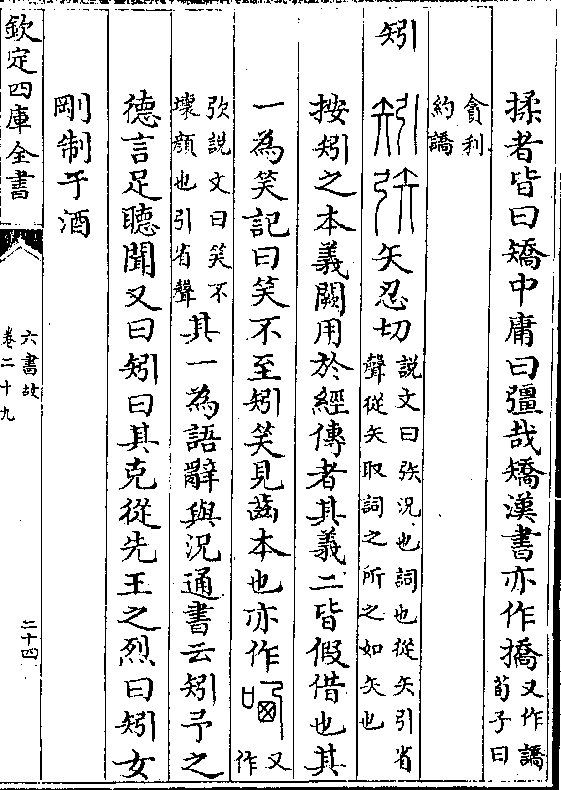 揉者皆曰矯中庸曰彊哉矯漢書亦作撟
又作譑
荀子曰
貪利
約譑
矧
矢忍切
說文曰矤況也詞也從矢引省
聲從矢取詞之所之如矢也
按矧之本義闕用於經傳者其義二皆假借也其
一為笑記曰笑不至矧笑見齒本也亦作
又
作
弞說文曰笑不
壞顏也引省聲
其一為語辭與況通書云矧予之
德言足聽聞又曰矧曰其克從先王之烈曰矧女
剛制于酒
欽定四庫全書
六書故
卷二十九
二十四